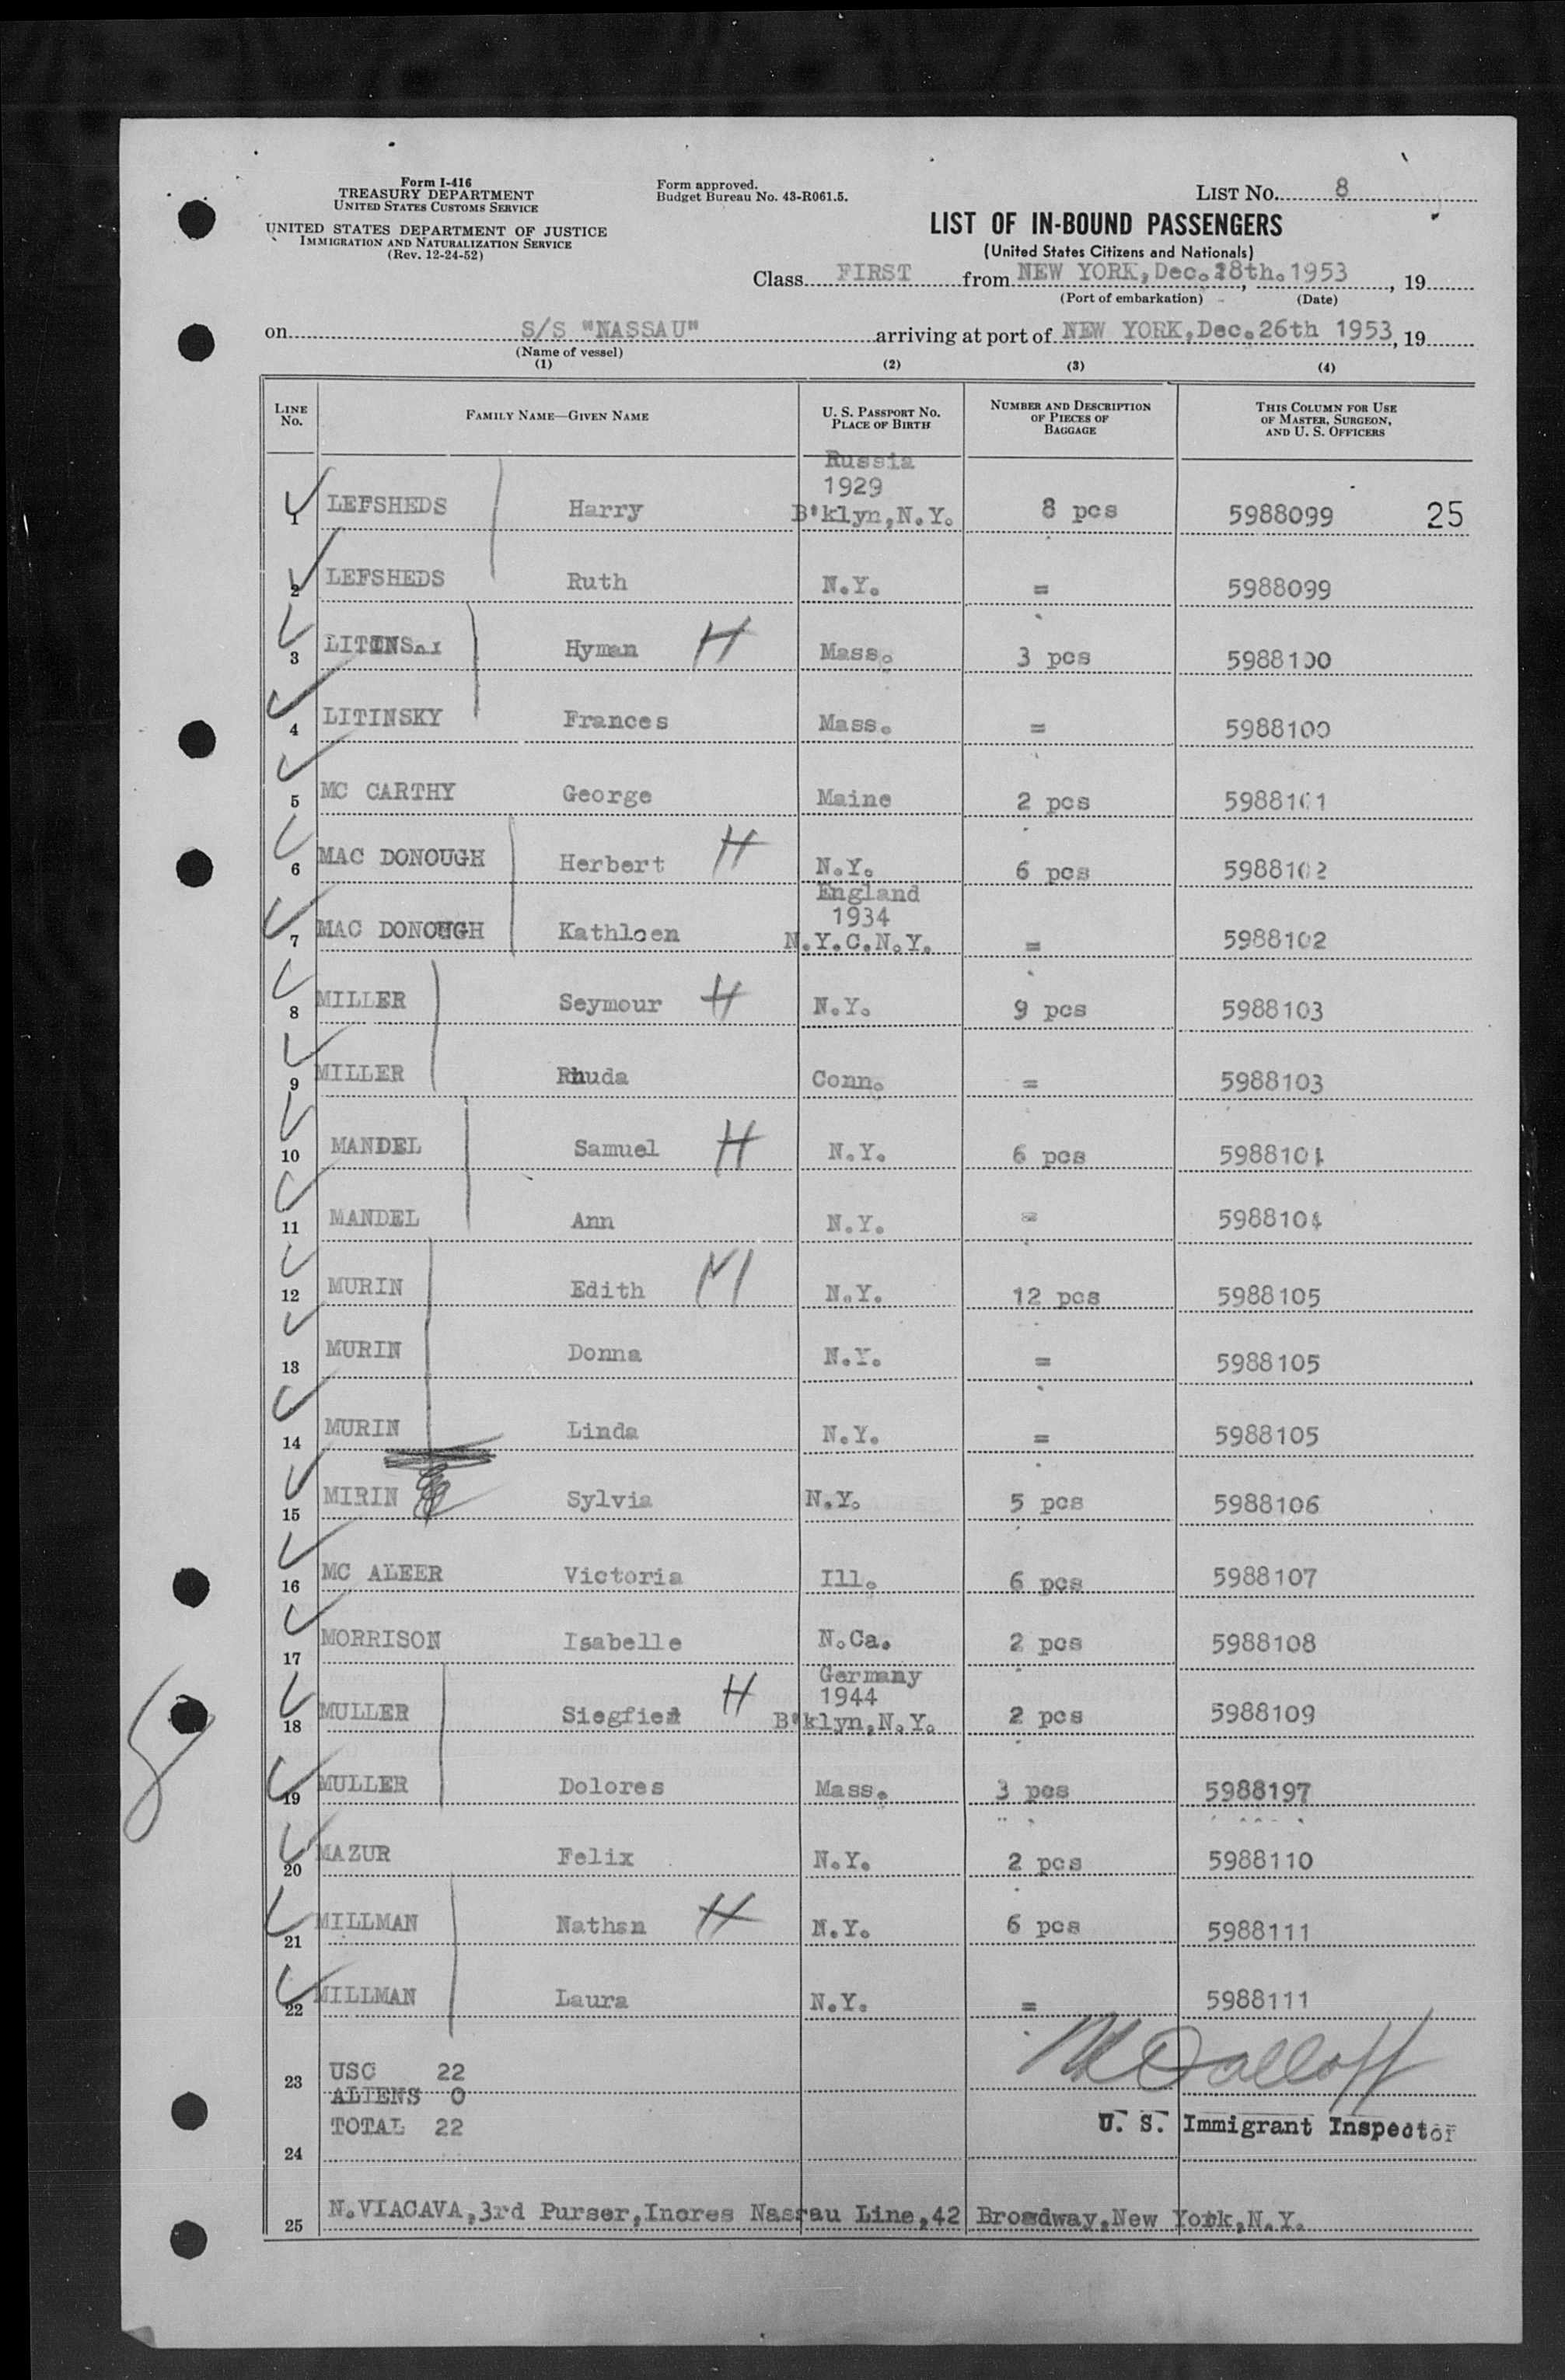 Form I-416
TREASURY DEPARTMENT
UNITED STATES CUSTOMS SERVICE
UNITED STATES DEPARTMENT OF JUSTICE
IMMIGRATION AND NATURALIZATION SERVICE
(Rev. 12-24-52)
Form approved.
Budget Bureau No. 43-R061.5.
LIST No. 8
LIST OF IN-BOUND PASSENGERS
(United States Citizens and Nationals)
Class FIRST from NEW YORK, Dec. 18th. 1953, 19
(Port of embarkation) (Date)
on S/S "NASSAU" arriving at port of NEW YORK, Dec. 26th 1953, 19
(Name of vessel)
(1) (2) (3) (4)
LINE No. FAMILY NAME—GIVEN NAME U. S. PASSPORT No. PLACE OF BIRTH NUMBER AND DESCRIPTION OF PIECES OF BAGGAGE THIS COLUMN FOR USE OF MASTER, SURGEON, AND U. S. OFFICERS
Russia
1929
1 LEFSHEDS Harry B'klyn,N.Y. 8 pcs 5988099 25
2 LEFSHEDS Ruth N.Y. = 5988099
3 Hyman H Mass. 3 pcs 5988100
4 LITINSKY Frances Mass. = 5988100
5 MC CARTHY George Maine 2 pcs 5988101
6 MAC DONOUGH Herbert H N.Y. 6 pcs 5988102
England
1934
7 MAC DONOUGH Kathleen N.Y.C.N.Y. = 5988102
8 MILLER Seymour H N.Y. 9 pcs 5988103
9 MILLER Rhuda Conn. = 5988103
10 MANDEL Samuel H N.Y. 6 pcs 5988104
11 MANDEL Ann N.Y. = 5988104
12 MURIN Edith M N.Y. 12 pcs 5988105
13 MURIN Donna N.Y. = 5988105
14 MURIN Linda N.Y. = 5988105
15 MIRIN Sylvia N.Y. 5 pcs 5988106
16 MC ALEER Victoria Ill. 6 pcs 5988107
17 MORRISON Isabelle N.Ca. 2 pcs 5988108
Germany
1944
18 MULLER Siegfied H B'klyn,N.Y. 2 pcs 5988109
19 MULLER Dolores Mass. 3 pcs 5988197
20 MAZUR Felix N.Y. 2 pcs 5988110
21 MILLMAN Nathan H N.Y. 6 pcs 5988111
22 MILLMAN Laura N.Y. = 5988111
23 USC 22
ALIENS 0
TOTAL 22
U. S. Immigrant Inspector
24
25 N.VIACAVA,3rd Purser,Incres Nassau Line,42 Broadway,New York,N.Y.